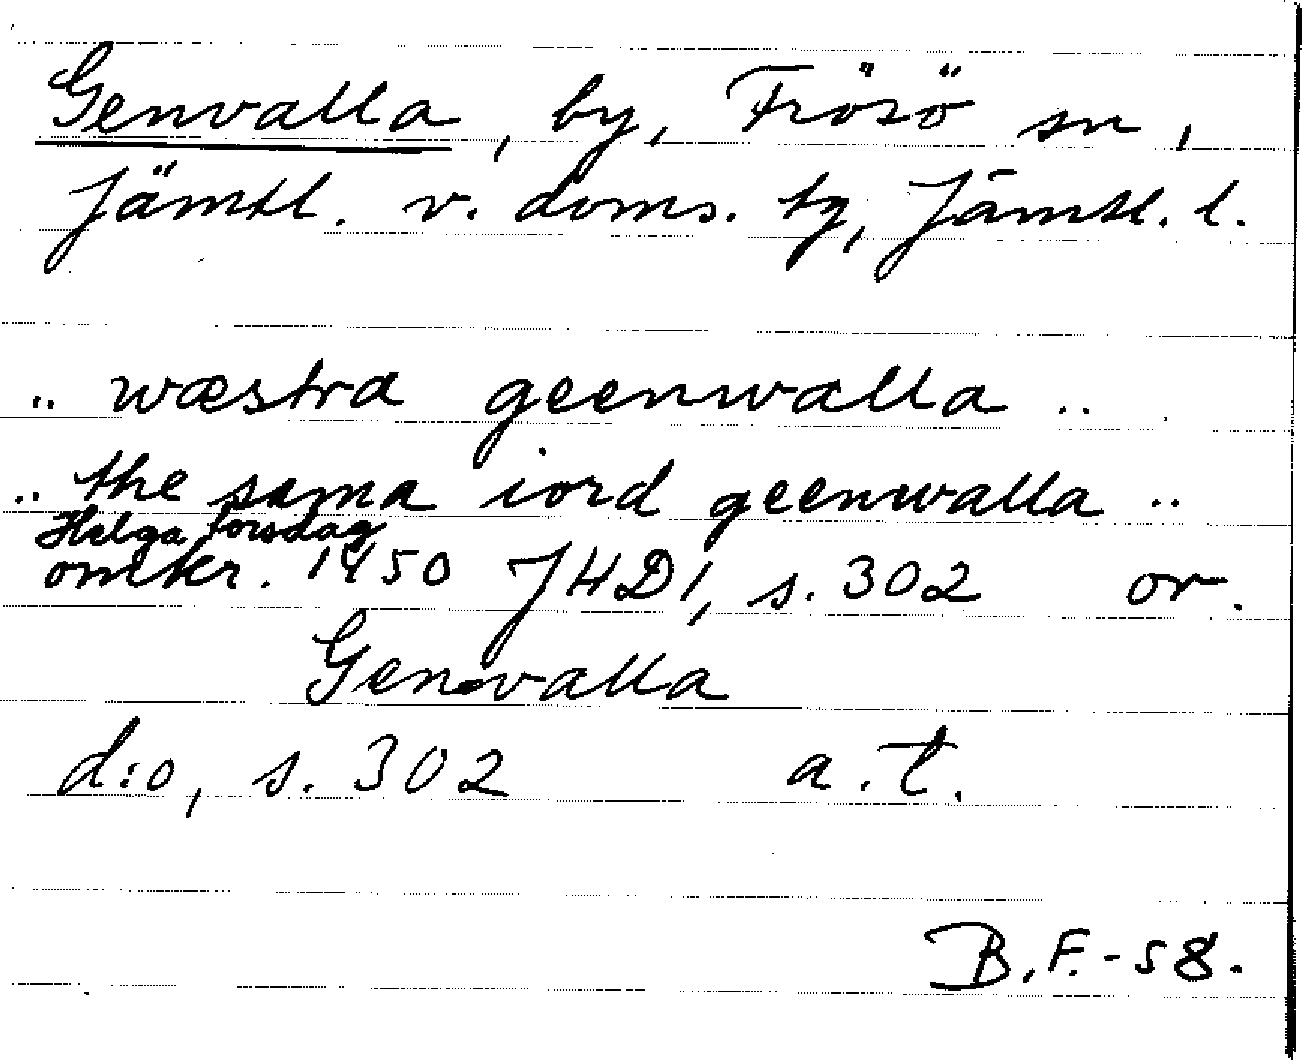 Genvalla, by, Frösö sn,
Jämtl. v. doms. tg, Jämtl. l.
.. wæstra geenwalla ..
.. the sama iord geenwalla ..
Helga torsdag
omkr. 1450 JHD1, s. 302 or.
Genvalla
d:o, s. 302 a.t.
B.F.-58.